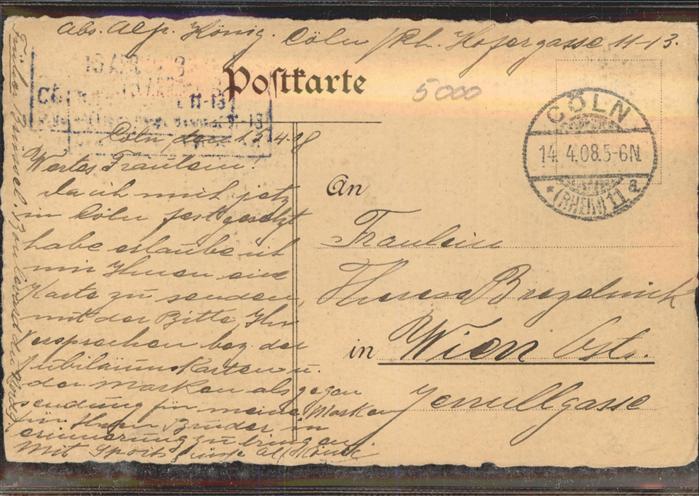 Abs. Alf. König. Cöln /Rh. Hofergasse 11-13.
Postkarte
5000
CÖLN
14. 4.08.5-6N.
* (RHEIN) 11 a.
11-13
Cöln, den 13.4.08
Wertes Fräulein!
Da ich mich jetz
in Cöln festgesetzt
habe erlaube ich
mir Ihnen eine
Karte zu senden,
mit der Bitte Ihr
Versprechen bez. der
Jubiläumskarten u.
der Marken als gegen
sendung für meine Marken
für Ihren Bruder in
erinnerung zu bringen
Mit
An
Fräulein
Theresa
in Wien